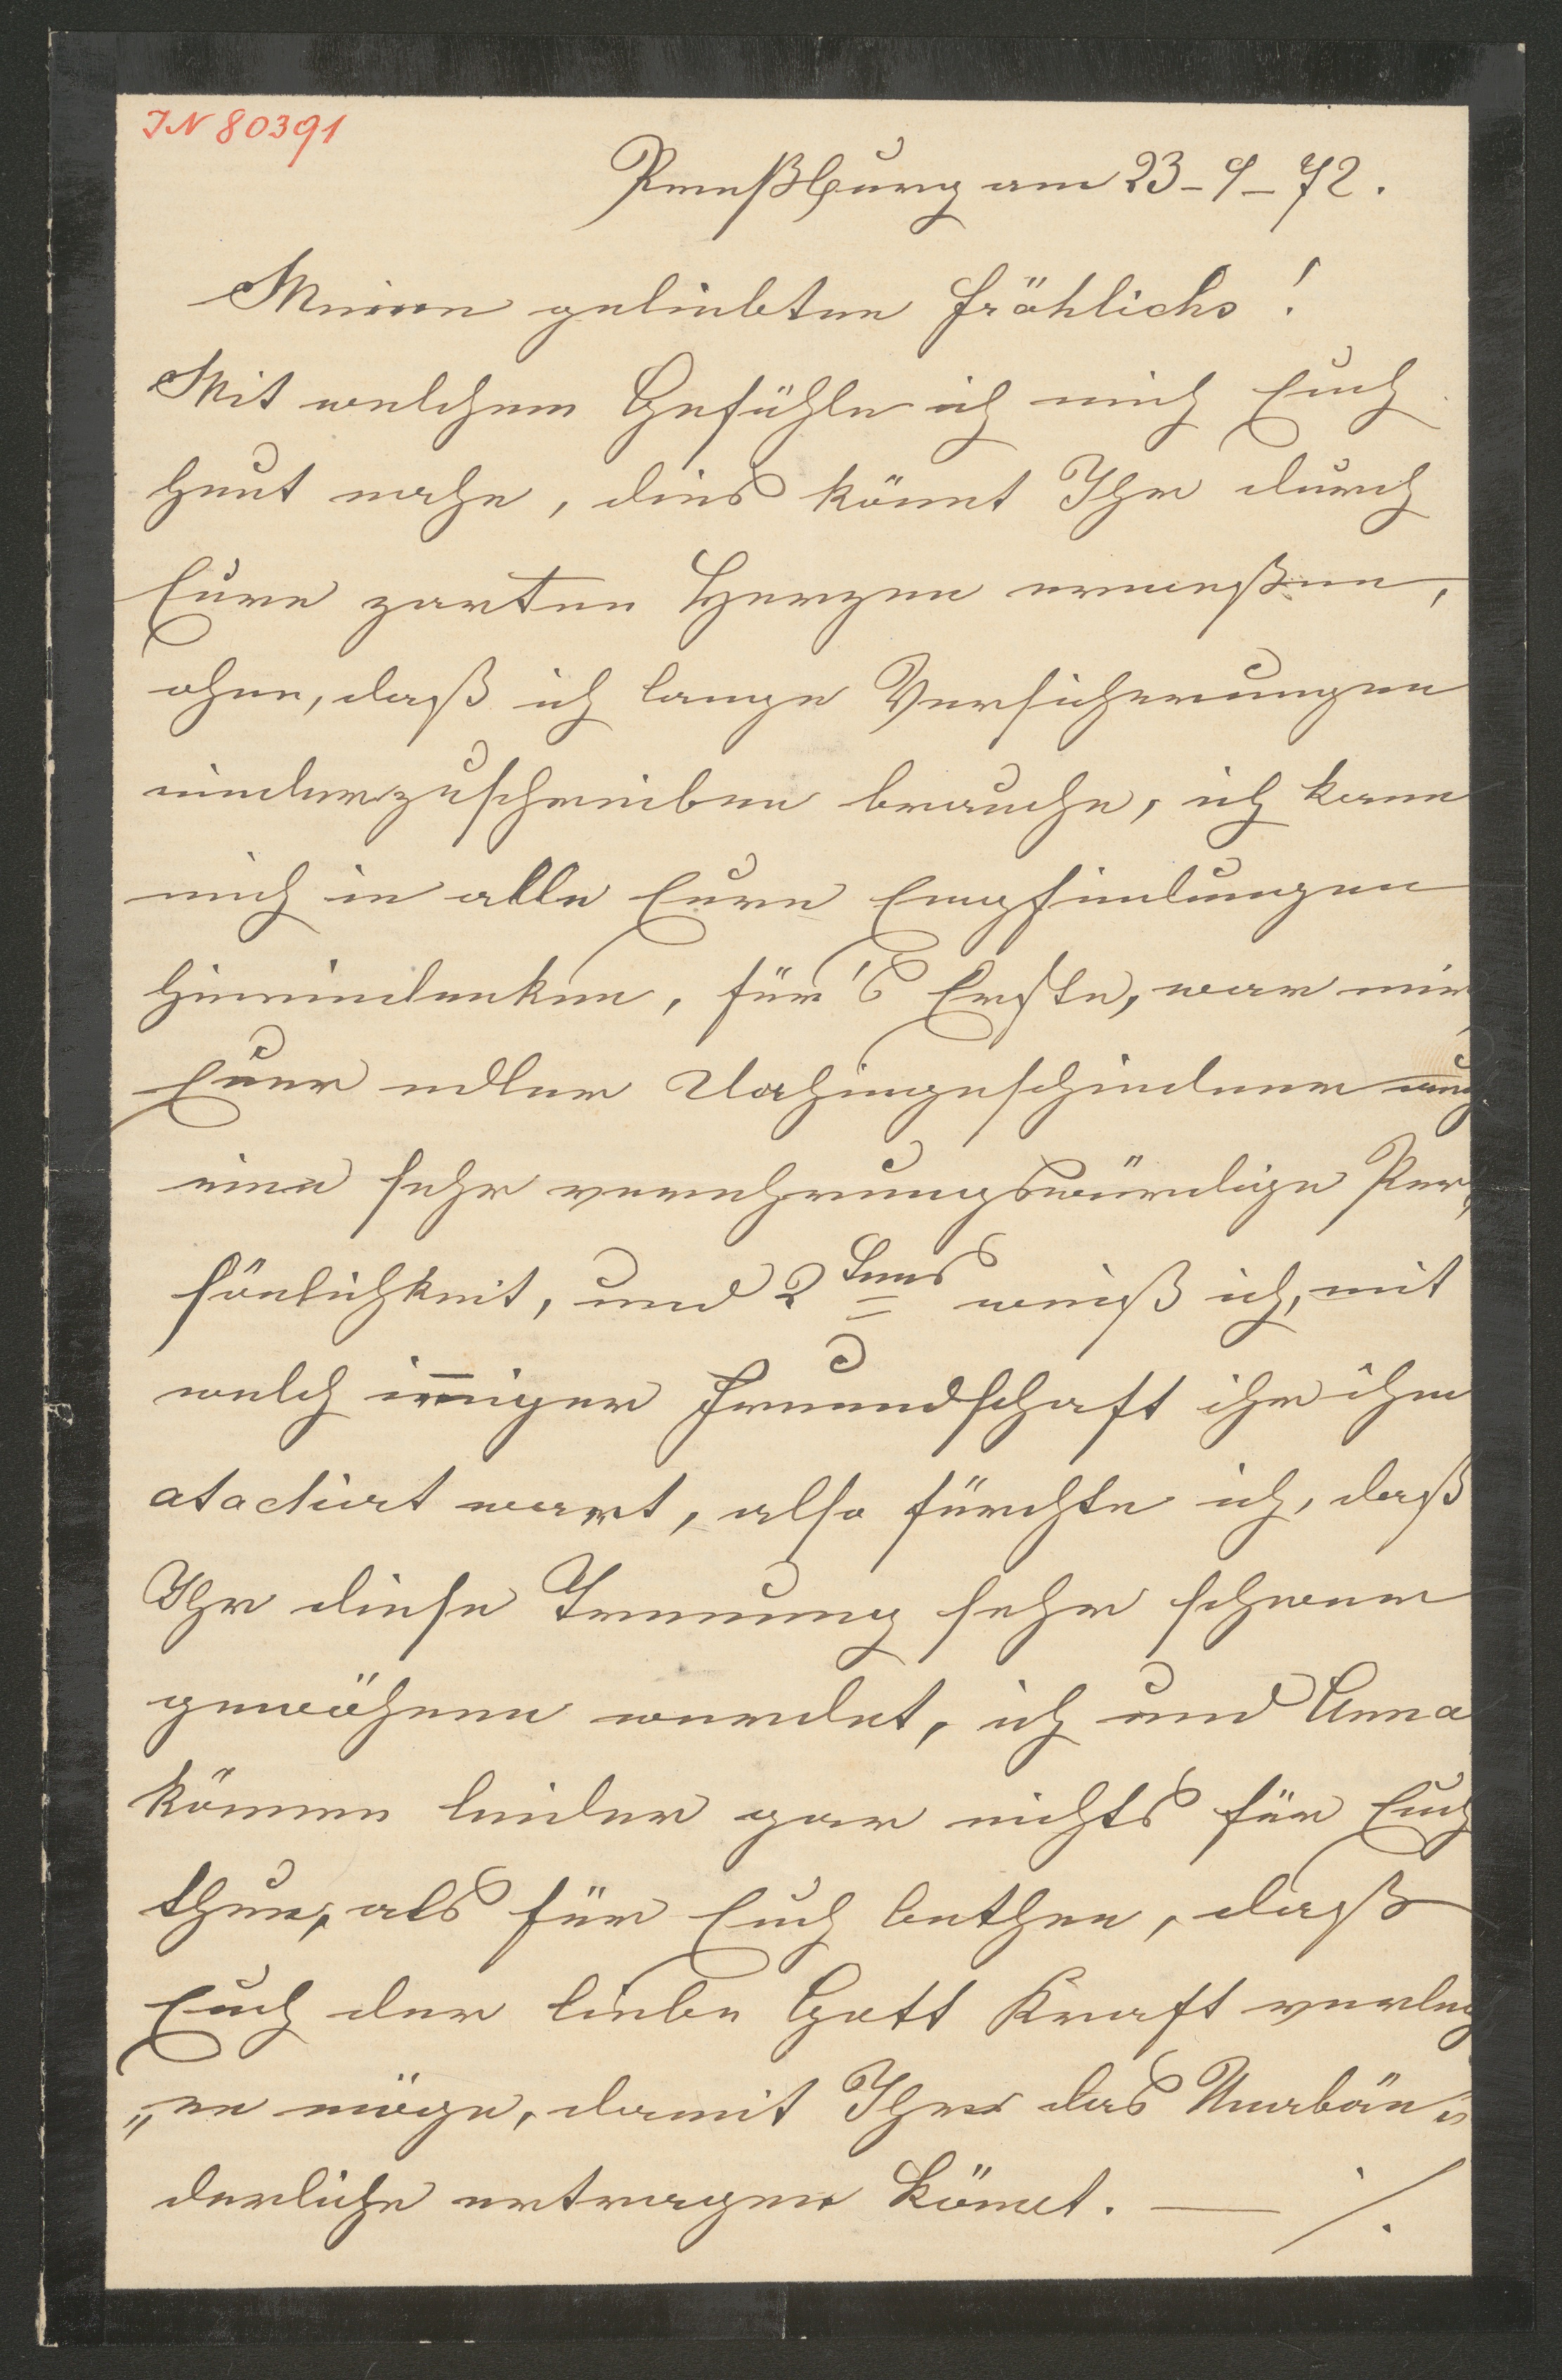 IN 80391
Preßburg am 23-1-72.
Meine geliebten Fröhlichs!
Mit welchem Gefühle ich mich Euch
heut nahe, dies könnt Ihr durch
Eure zarten Herzen ermeßen,
ohne, daß ich lange Versicherungen
niederzuschreiben brauche, ich kann
mich in alle Eure Empfindungen
hineindenken, für's Erste, war mir
Euer edler Dahingeschiedener auch
eine sehr verehrungswürdige Per„
sönlichkeit, und 2tens weiß ich, mit
welch iniger Freundschaft ihr ihm
atachirt wart, also fürchte ich, daß
Ihr diese Trennung sehr schwer
gewöhnen werdet, ich und Anna
können leider gar nichts für Euch
thun, als für Euch bethen, daß
Euch der liebe Gott Kraft verleih
„en möge, damit Ihr das Unabän„
derliche ertragen könnt. — ./.